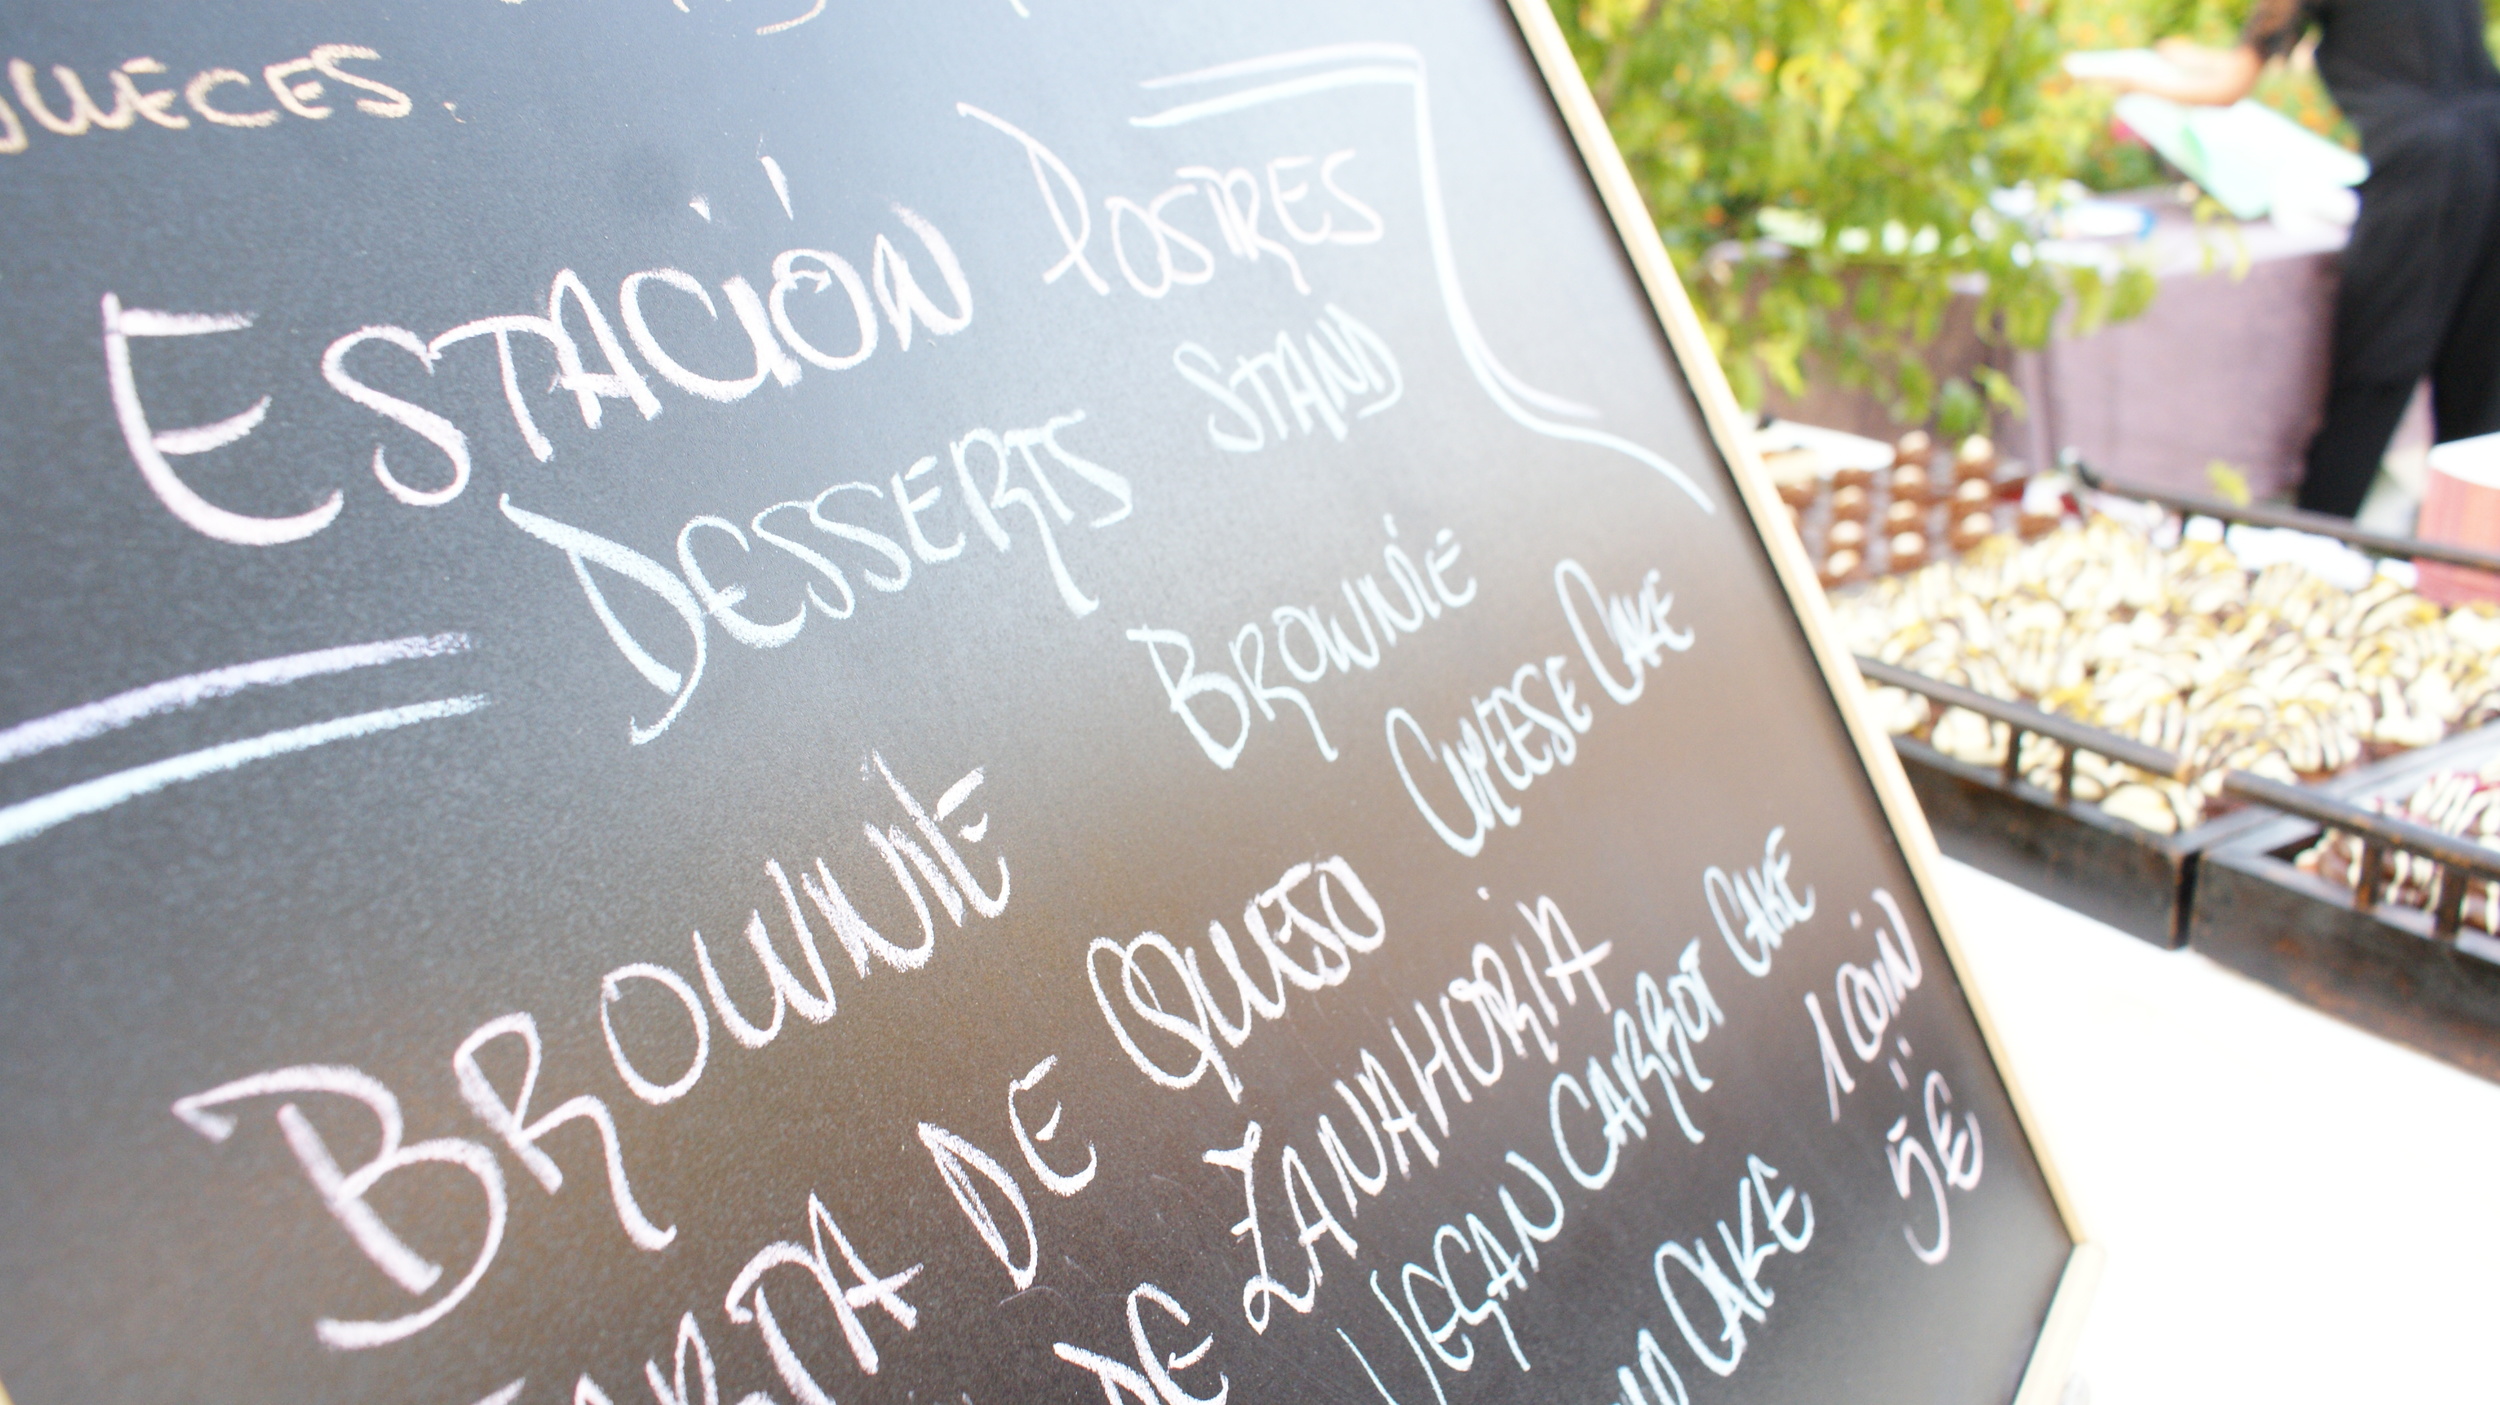 ESTACIÓN POSTRES
DESSERTS STAND
BROWNIE
BROWNIE
TARTA DE QUESO
CHEESE CAKE
DE ZANAHORIA
VEGAN CARROT CAKE
CAKE
1 COIN
5€